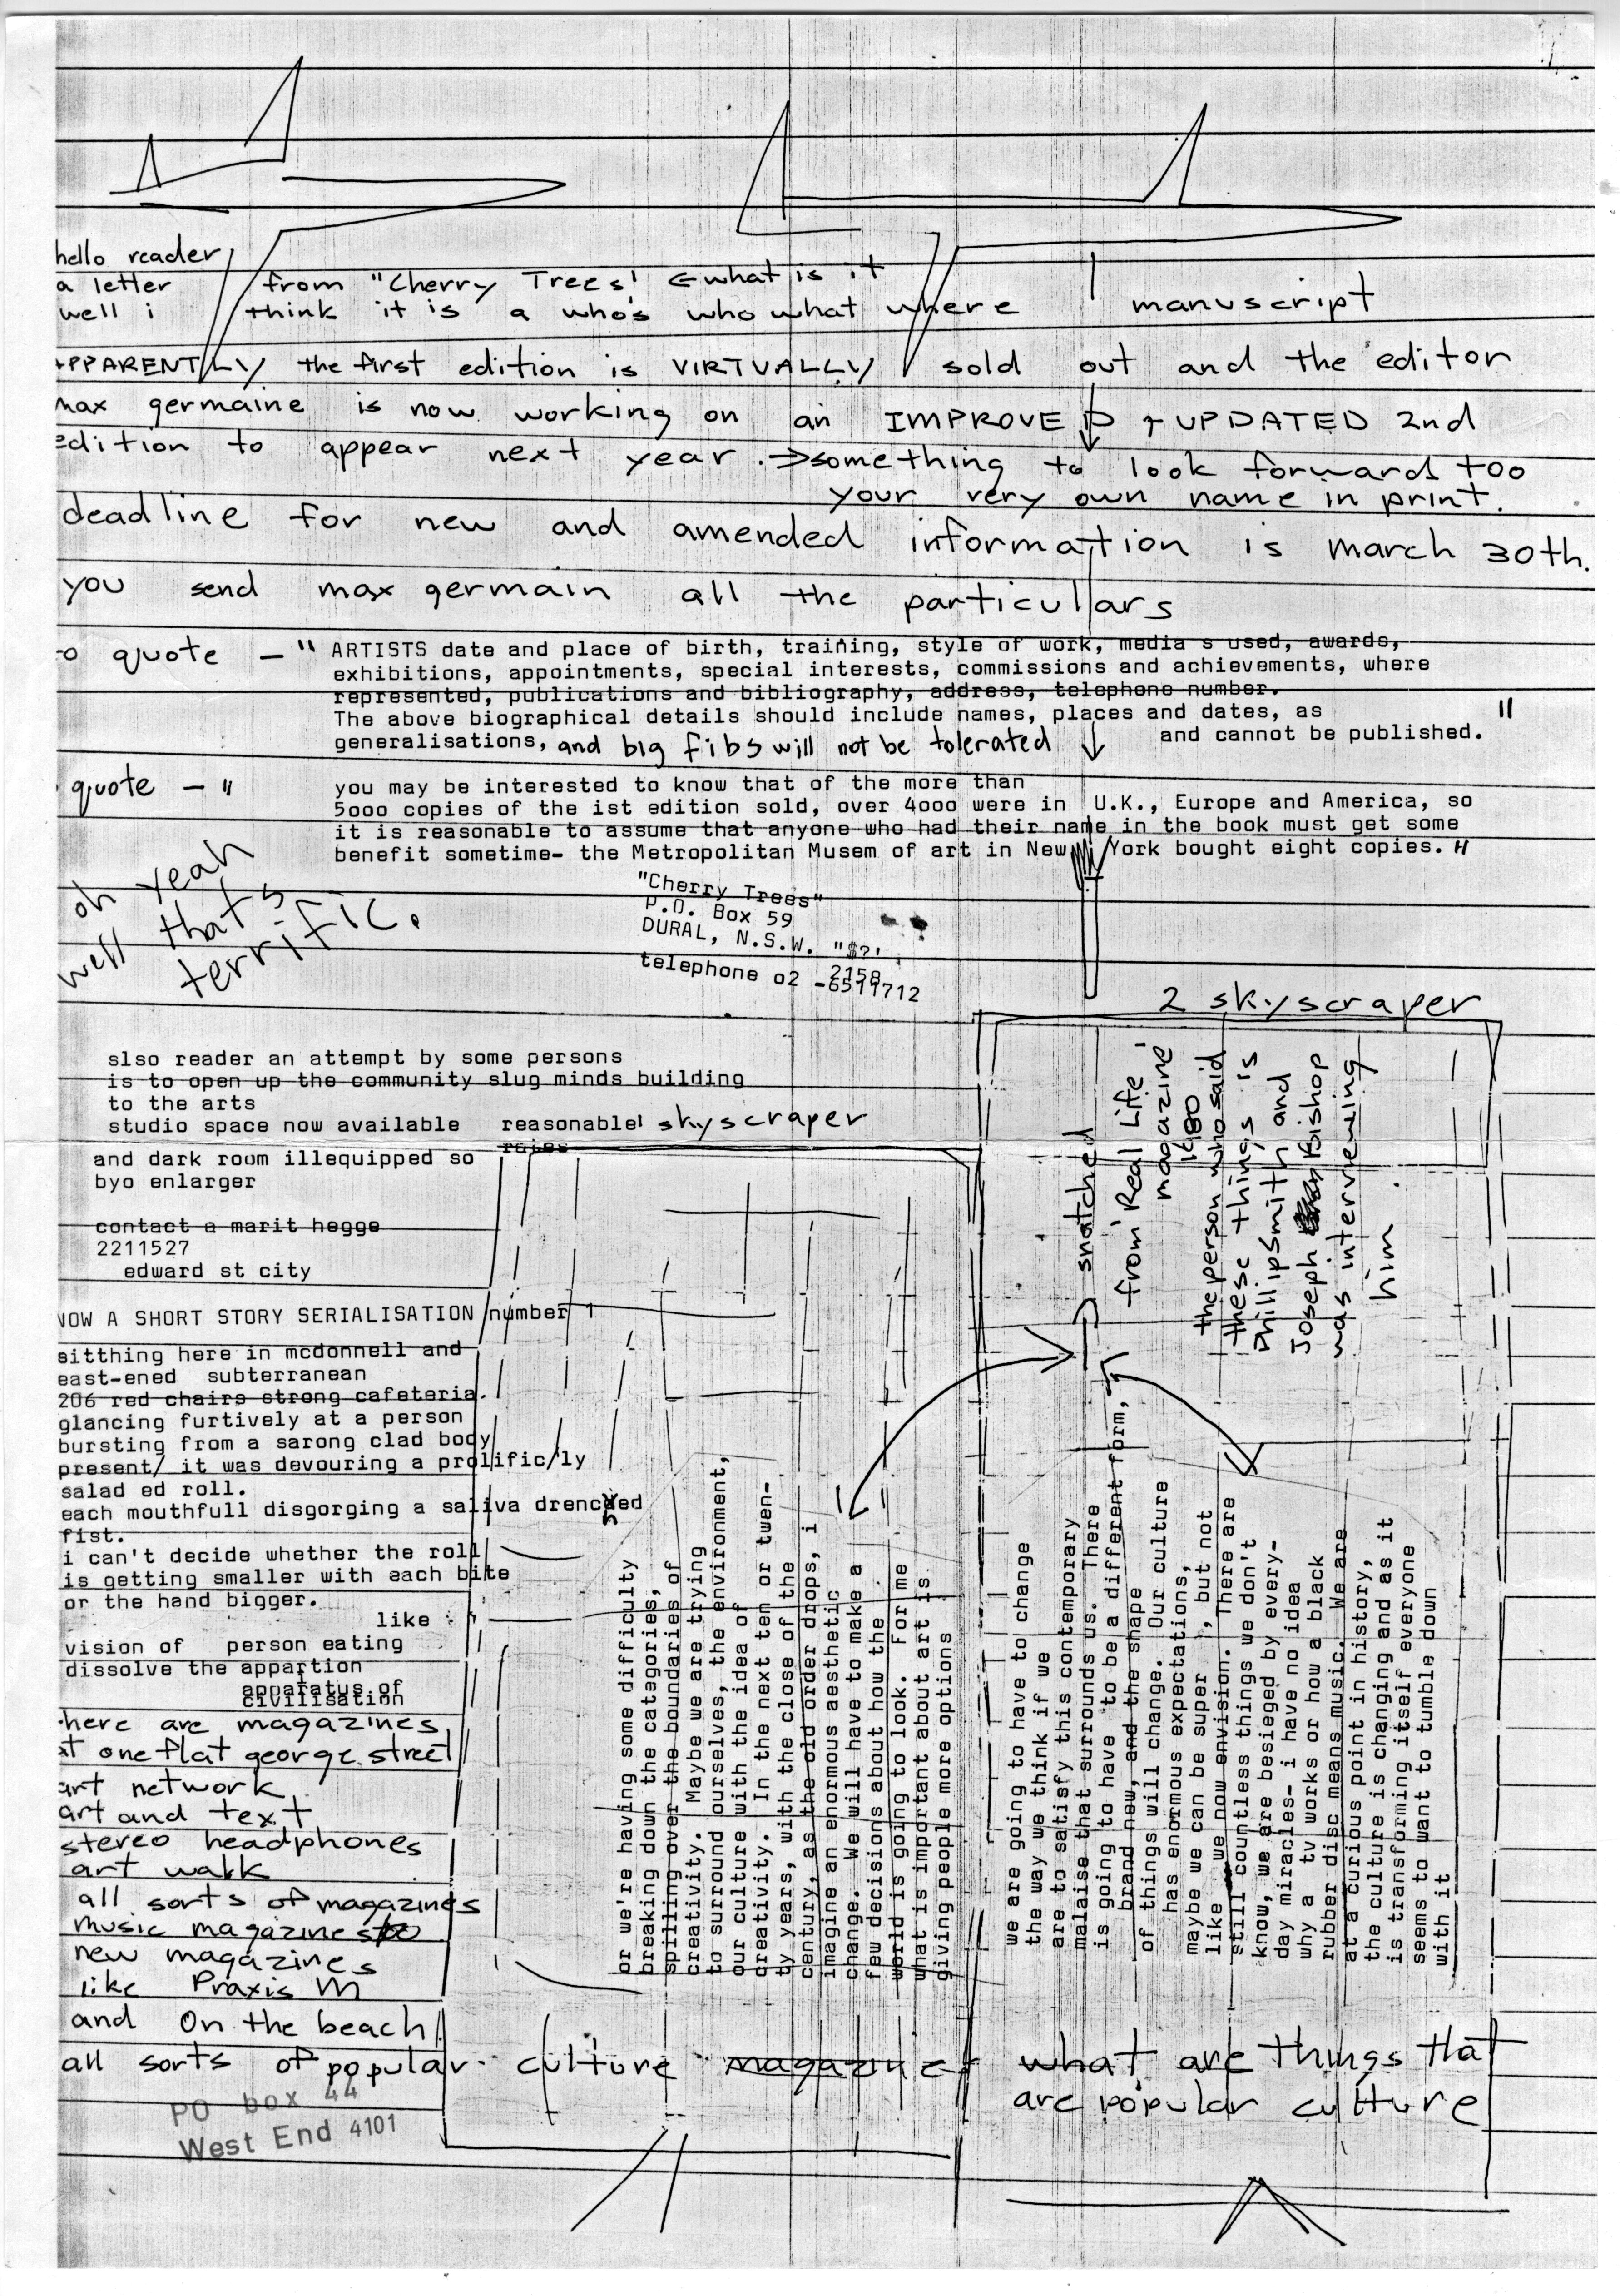 hello reader
a letter from "Cherry Trees' ← what is it
well i think it is a who's who what where manuscript
APPARENTLY the first edition is VIRTUALLY sold out and the editor
max germaine is now working on an IMPROVED + UPDATED 2nd
edition to appear next year. → something to look forward too
your very own name in print.
deadline for new and amended information is march 30th.
you send max germain all the particullars
to quote - " ARTISTS date and place of birth, training, style of work, media s used, awards,
exhibitions, appointments, special interests, commissions and achievements, where
represented, publications and bibliography, address, telephone number.
The above biographical details should include names, places and dates, as "
generalisations, and big fibs will not be tolerated and cannot be published.
quote - " you may be interested to know that of the more than
5ooo copies of the ist edition sold, over 4ooo were in U.K., Europe and America, so
it is reasonable to assume that anyone who had their name in the book must get some
benefit sometime- the Metropolitan Musem of art in New York bought eight copies. "
oh yeah
well that's
terrific.
"Cherry Trees"
P.O. Box 59
DURAL, N.S.W. "$?'
2158
telephone o2 -6511712
2 skyscraper
slso reader an attempt by some persons
is to open up the community slug minds building
to the arts
studio space now available reasonable' skyscraper
rates
and dark room illequipped so
byo enlarger
contact a marit hegge
2211527
edward st city
snatched
from 'Real Life'
magazine'
1980
the person who said
these things is
Phillip Smith and
Joseph Bishop
was interviewing
him.
NOW A SHORT STORY SERIALISATION number 1
sitthing here in mcdonnell and
east-ened subterranean
206 red chairs strong cafeteria.
glancing furtively at a person
bursting from a sarong clad body
present/ it was devouring a prolific/ly
salad ed roll.
each mouthfull disgorging a saliva drenched
fist.
i can't decide whether the roll
is getting smaller with each bite
or the hand bigger.
like
vision of person eating
dissolve the appartion
apparatus of
civilisation
here are magazines
at one flat george street
art network
art and text
stereo headphones
art walk
all sorts of magazines
music magazines too
new magazines
like Praxis M
and On the beach
all sorts of popular culture magazines what are things that
are popular culture
PO box 44
West End 4101
or we're having some difficulty
breaking down the categories,
spilling over the boundaries of
creativity. Maybe we are trying
to surround ourselves, the environment,
our culture with the idea of
creativity. In the next ten or twen-
ty years, with the close of the
century, as the old order drops, i
imagine an enormous aesthetic
change. We will have to make a
few decisions about how the
world is going to look. For me
what is important about art is
giving people more options
we are going to have to change
the way we think if we
are to satisfy this contemporary
malaise that surrounds us. There
is going to have to be a different form,
brand new, and the shape
of things will change. Our culture
has enormous expectations,
maybe we can be super , but not
like we now envision. There are
still countless things we don't
know, we are besieged by every-
day miracles- i have no idea
why a tv works or how a black
rubber disc means music. We are
at a curious point in history,
the culture is changing and as it
is transforming itself everyone
seems to want to tumble down
with it